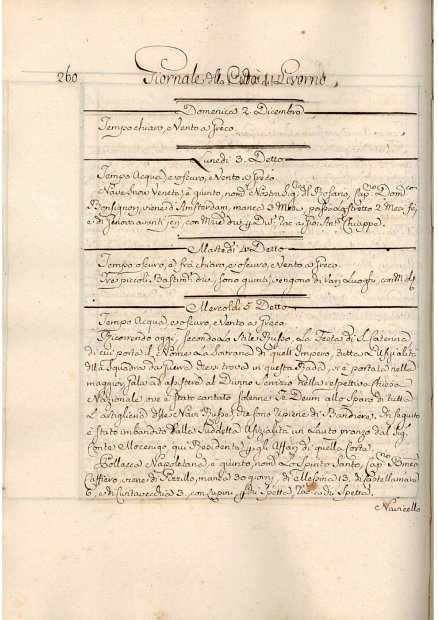 260 Giornale della Città di Livorno
Domenica 2. Dicembre
Tempo chiaro, e Vento a Greco
Lunedì 3. Detto
Tempo Acqua, e oscuro, e Vento a Greco
Nave Inov. Veneta è giunto, nom: Nostra Sig: del Rosario, Cap: Dom:co
Bonsignori, viene d'Amsterdam, manca 3 Mesi, passò lo Stretto 2 Mesi
e di Genova avanti jeri, con
Martedì 4. Detto
Tempo oscuro, e frà chiaro, e oscuro, e Vento a Greco.
Tre piccoli Bastim:ti sono giunti, vengono di Varj Luoghi, con
Mercoldì 5 Detto
Tempo Acqua, e oscuro, e Vento a Greco.
Ricorrendo oggi, secondo lo Stile Russo, la Festa di S. Caterina
di cui porta il Nome la Sovrana di quell'Impero, tutta l'Ufizialità
della Squadra da Guerra che si trova in questa Rada, si è portata nella
maggior gala ad assistere al Divino Servizio nella respettiva Chiesa
Nazionale, ove è stato cantato solenne Te Deum allo sparo di tutta
l'artiglieria delle Navi Russe, che sono ripiene di Bandiere. In seguito
è stato imbandito dalla suddetta Ufizialità un lauto pranzo dal Sig:
Conte Mocenigo qui Residente p gli Affari di quella Corte.
Pollacca Napoletana è giunto, nom: Lo Spirito Santo, Cap:no
Caffiero, viene di manca 30 giorni, di Messina 13, di Castellamare
6, e di Civitavecchia 3, con
Navicello